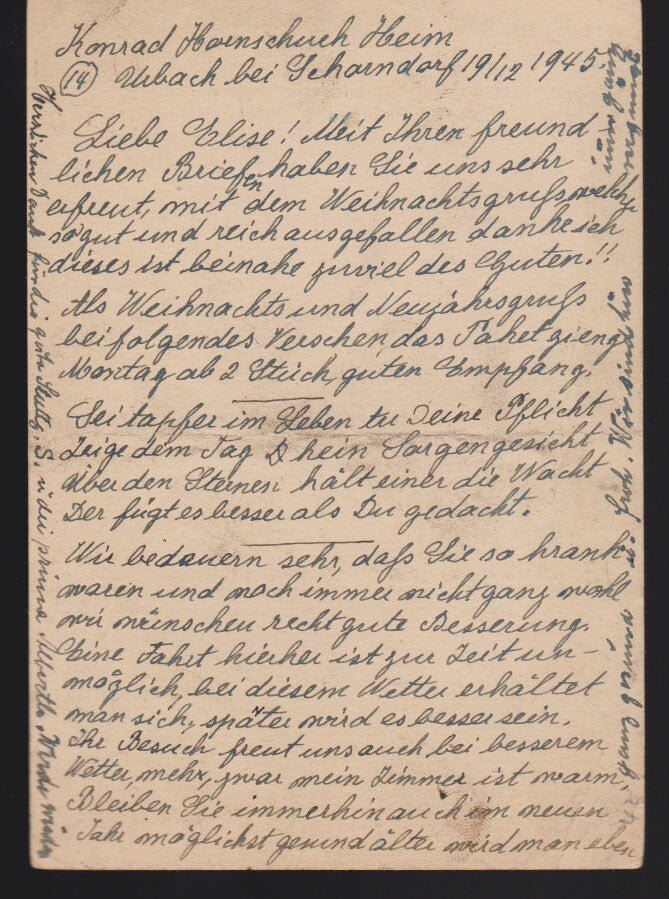 Konrad Hornschuch Heim
(14) Urbach bei Schorndorf 19/12 1945.
Liebe Elise! Mit Ihren freund-
lichen Briefen haben Sie uns sehr
erfreut, mit dem Weihnachtsgruß, welche
so gut und reich ausgefallen danke ich
dieses ist beinahe zuviel des Guten!!
Als Weihnachts und Neujahrsgruß
beifolgendes Verschen das Paket gieng
Montag ab 2 Stück, guten Empfang.
Sei tapfer im Leben tu Deine Pflicht
Zeige dem Tag kein Sorgengesicht
Über den Sternen hält einer die Wacht
Der fügt es besser als Du gedacht.
Wir bedauern sehr, daß Sie so krank
waren und noch immer nicht ganz wohl
wir wünschen recht gute Besserung.
Eine Fahrt hierher ist zur Zeit un-
möglich, bei diesem Wetter erhältet
man sich, später wird es besser sein.
Ihr Besuch freut uns auch bei besserem
Wetter, mehr, zwar mein Zimmer ist warm.
Bleiben Sie immerhin auch im neuen
Jahr möglichst gesund älter wird man eben
ganz gesund u. froh. Wir sind hier
Herzlichen Dank für die gute
S. u die prima